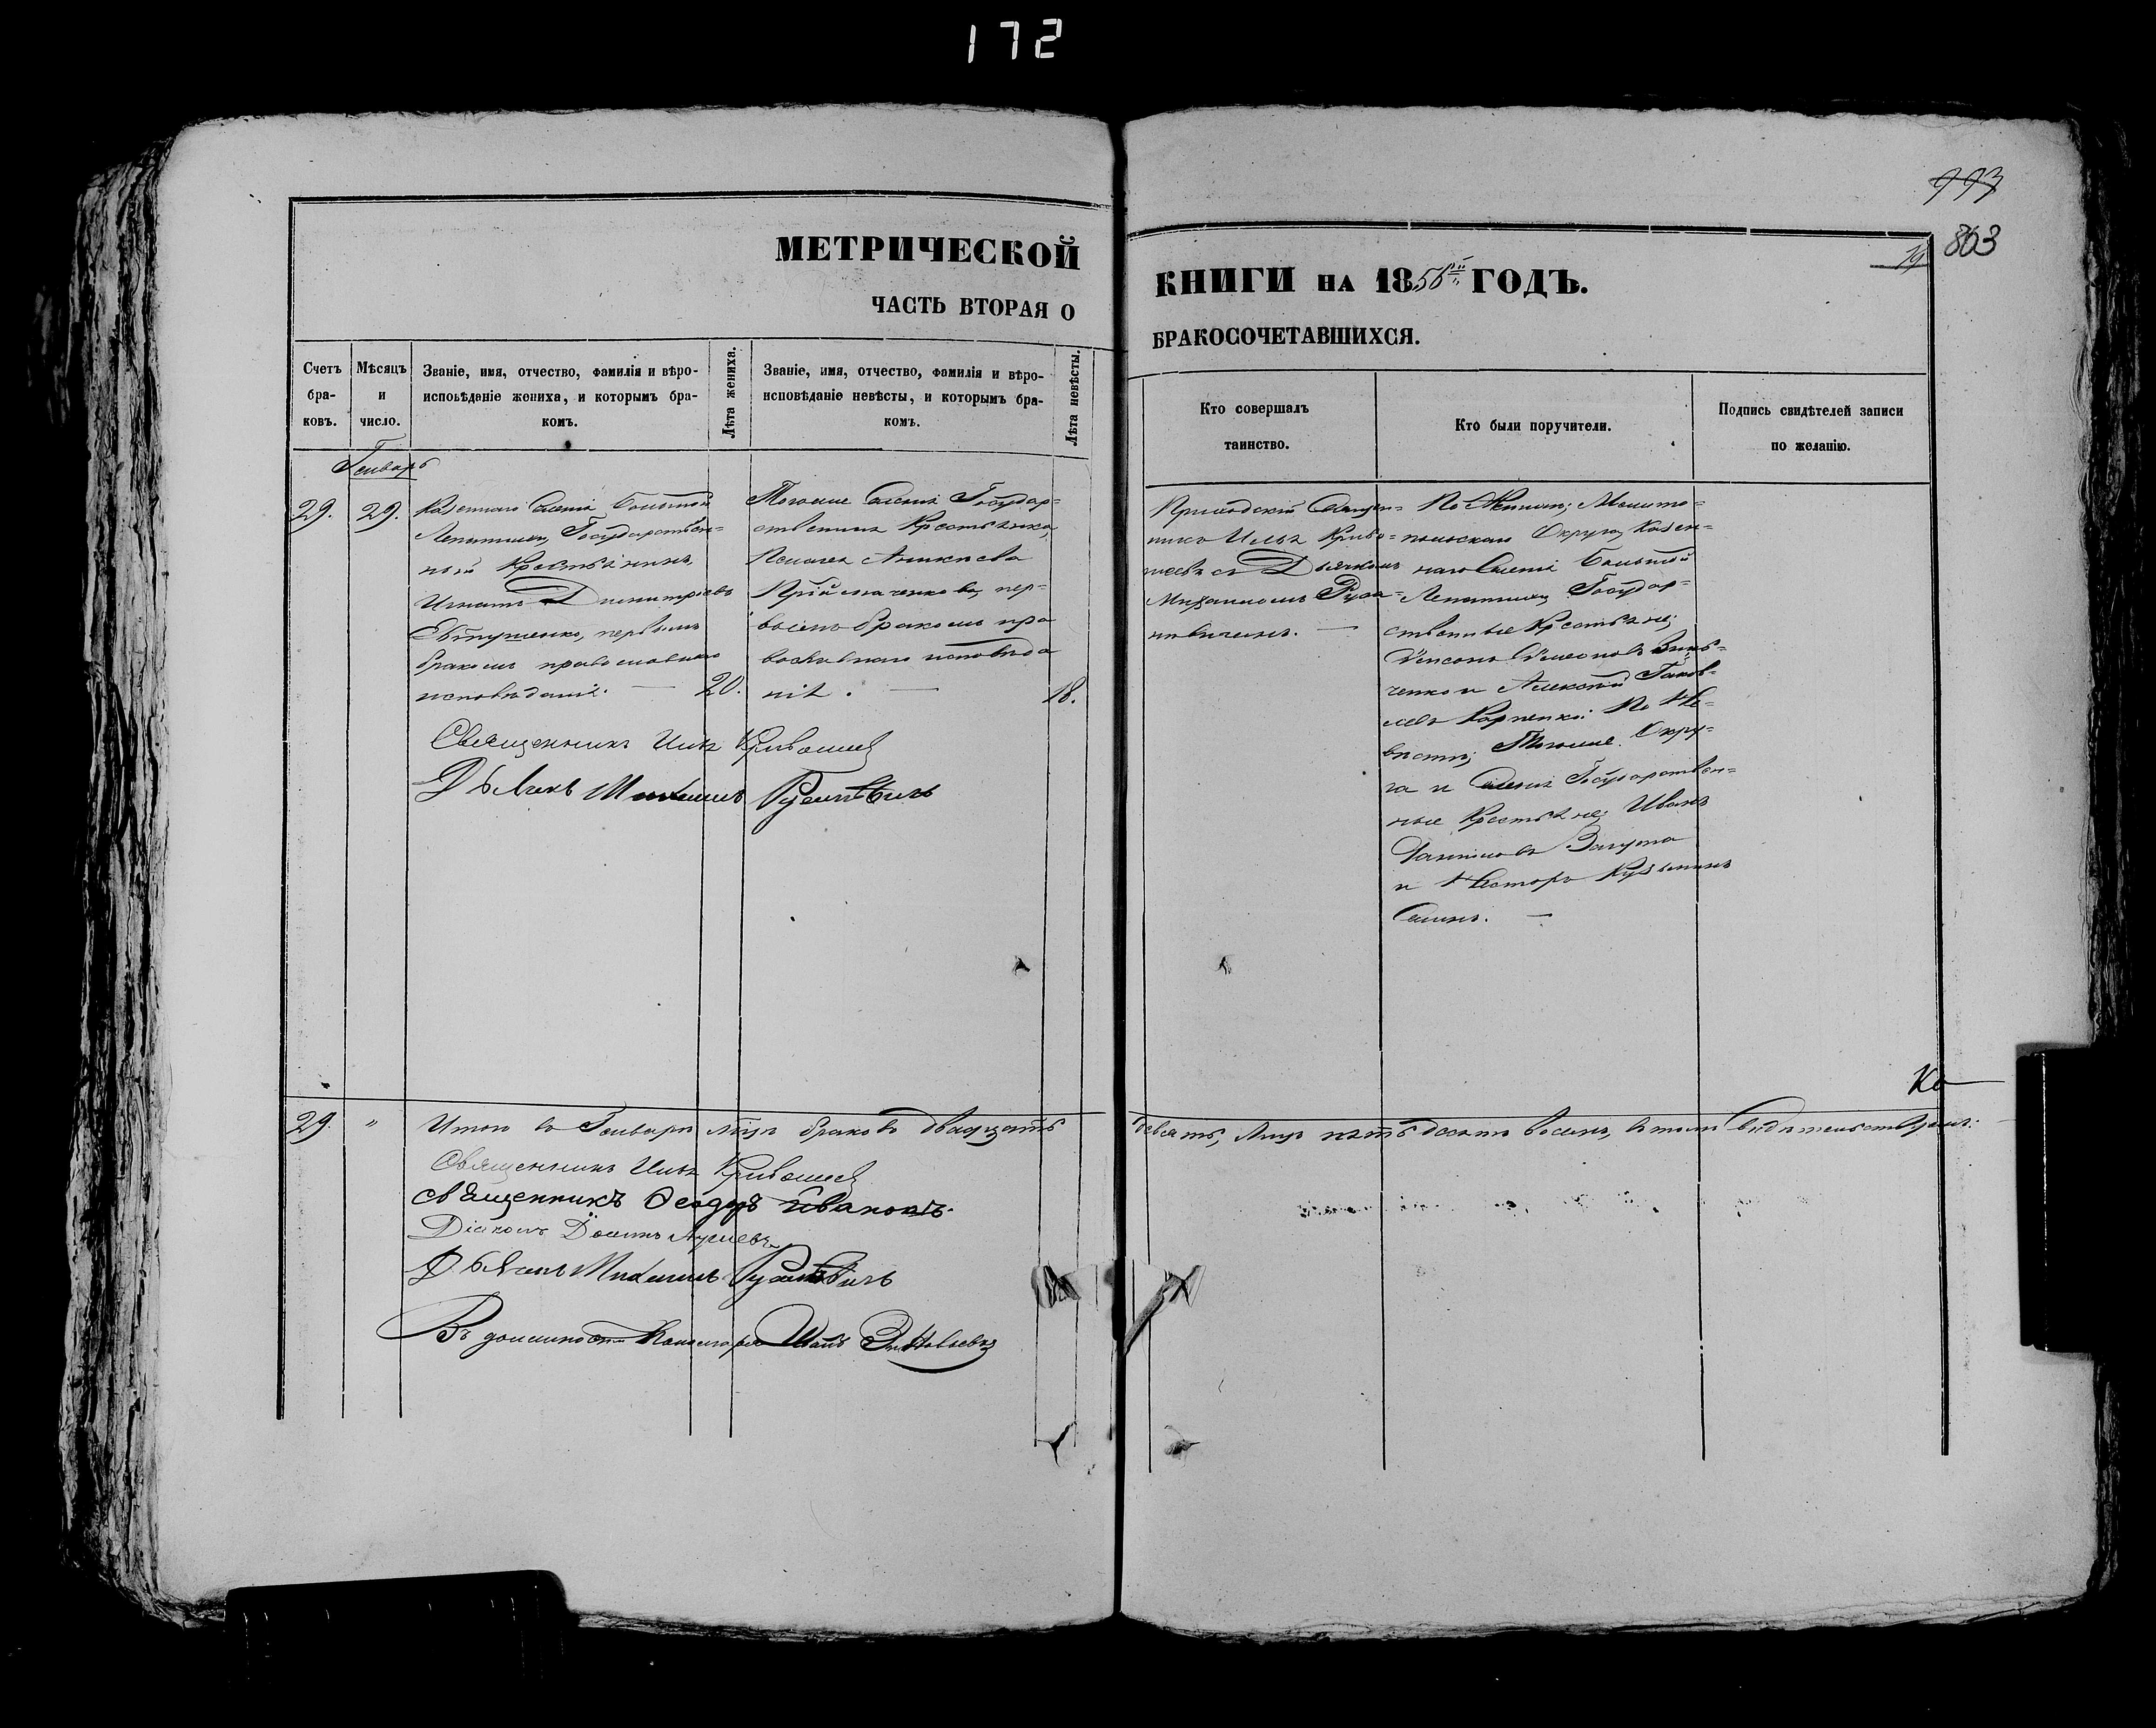 172
993
863
19
МЕТРИЧЕСКОЙ
КНИГИ НА 1856й ГОДЪ.
ЧАСТЬ ВТОРАЯ О
БРАКОСОЧЕТАВШИХСЯ.
Счетъ бра- ковъ.
Мѣсяцъ и число.
Званіе, имя, отчество, фамилія и вѣро-
исповѣданіе жениха, и которымъ бра-
комъ.
Лѣта жениха.
Званіе, имя, отчество, фамилія и вѣро-
исповѣданіе невѣсты, и которымъ бра-
комъ.
Лѣта невѣсты.
Кто совершалъ
таинство.
Кто были поручители.
Подпись свидѣтелей записи
по желанію.
Генварь
29.
29.
Казеннаго Селенія Большой
Лепатихи, Государствен-
ный Крестьянинъ,
Игнатъ Димитріевъ
Евтушенко, первымъ
бракомъ православнаго
исповѣданія.
20.
Тогоже Селенія Государ-
ственная Крестьянка,
Аникіева
пер-
вымъ бракомъ пра
вославнаго исповѣда
нія.
18.
Приходскій Священ-
никъ Илья Криво-
шеевъ съ Дьячкомъ
Михаиломъ Руса-
новичемъ.
По Женихѣ; Мелито-
польскаго Округа, Казен-
наго Селенія Большой
Лепатихи Государ-
ственные Крестьяне;
Симеоновъ
ченко и Алексѣй Яков-
левъ Карпенко: По Не-
вѣстѣ; Тогоже Окру-
га и Селенія Государствен-
ные Крестьяне; Иванъ
Даниловъ
и Несторъ Кузьминъ
Священникъ Илья Кривошеев
Дьячекъ Михаилъ Русановичъ
29. "
Итого въ Генварѣ мѣцѣ браковъ двадцать
девять, лицъ пятьдесятъ восемь, въ томъ свидѣтельствуемъ:
Священникъ Илья Кривошеев
священникъ Ѳеодоръ Ивановъ.
Діаконъ
Дьячекъ Михаилъ Русановичъ
Въ должности Пономаря